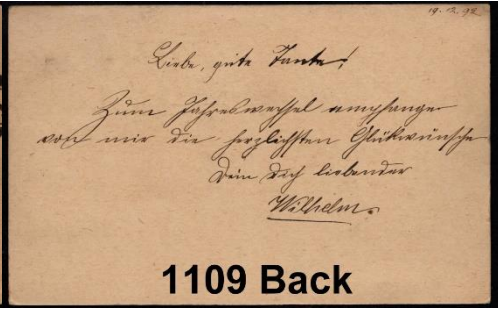 19.12.92
Liebe, gute Tante!
Zum Jahreswechsel empfange
von mir die herzlichsten Glükwünsche
Dein Dich liebender
Wilhelm.
1109 Back